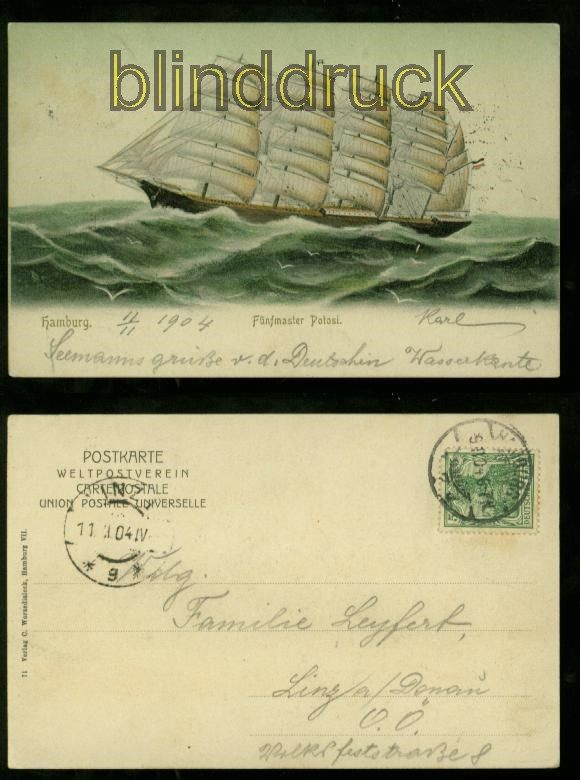 blinddruck
Hamburg. 11/11 1904 Fünfmaster Potosi. Karl
Seemannsgrüße v. d. Deutschen Wasserkante
POSTKARTE
WELTPOSTVEREIN
CARTE POSTALE
UNION POSTALE UNIVERSELLE
11 04 IV
* 9 *
71 Verlag C. Worzedialeck, Hamburg VII.
Wdg.
Familie Leyfert,
Linz a/Donau
O.Ö.
Volksfeststraße 8